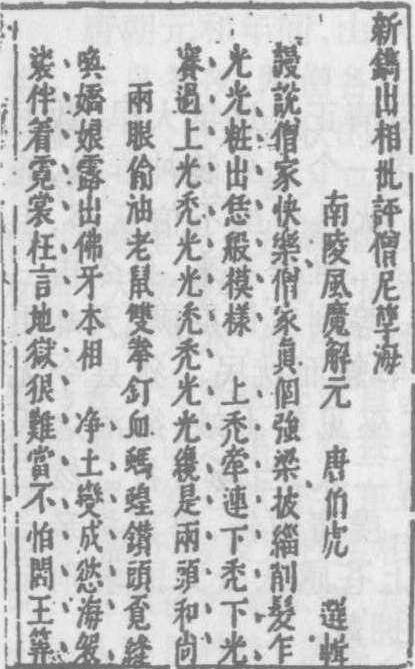 新鐫出相批評僧尼孽海
南陵風魔解元　唐伯虎　選輯
謾說僧家快樂僧家真個強梁披緇削髮乍
光光粧出恁般模樣　上禿牽連下禿下光
賽過上光禿光光禿禿光光纔是兩頭和尚
兩眼偷油老鼠雙拳釘血螞蝗鑽頭覓縫
喚嬌娘露出佛牙本相　净土變成慾海袈
裟伴着霓裳枉言地獄狠難當不怕閻王筭